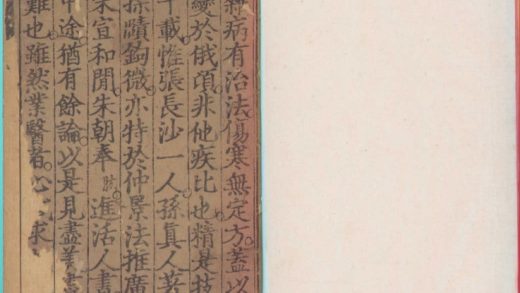 病有治法傷寒無定方蓋以
變於俄頃非他疾比也精是技
千載惟張長沙一人孫真人著
探賾鉤微亦特於仲景法推廣
宋宣和間朱朝奉肱進活人書
中途猶有餘論以是見盡美
難也雖然業醫者心求